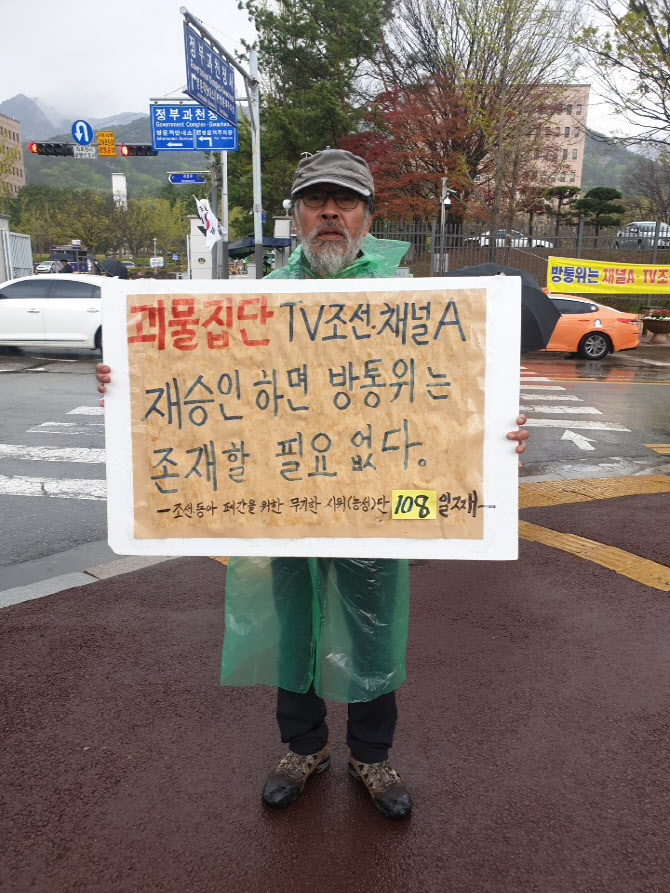 정부과천청사
정부과천청사
Government Complex-Gwacheon
방문객안내소
Information
괴물집단 TV조선·채널A
재승인하면 방통위는
존재할 필요 없다.
-조선동아 폐간을 위한 무기한 시위(농성)단 108일째-
방통위는 채널A·TV조